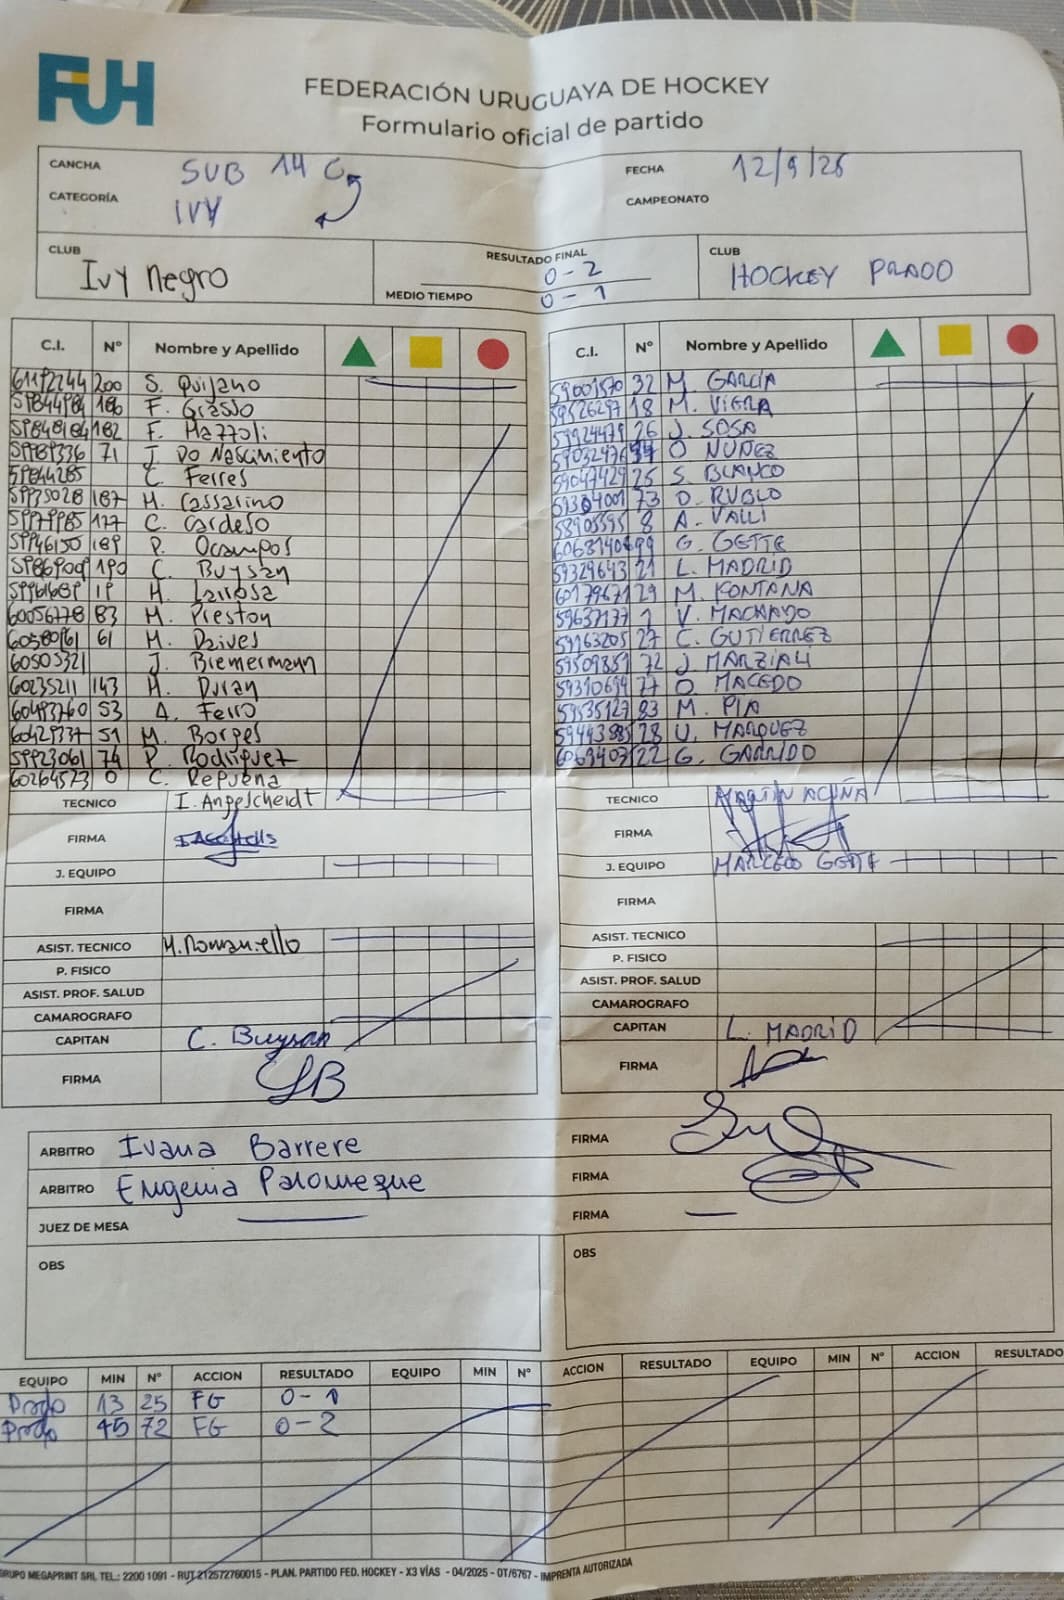 FUH
FEDERACIÓN URUGUAYA DE HOCKEY
Formulario oficial de partido
CANCHA SUB 14 C
CATEGORÍA IVY
FECHA 12/9/25
CAMPEONATO
CLUB Ivy Negro
RESULTADO FINAL 0-2
MEDIO TIEMPO 0-1
CLUB HOCKEY PRADO
C.I. N° Nombre y Apellido
200 S. Quijano
F. Grasso
182 F. Mazzoli
71 Do Nascimento
C. Ferres
187 M. Cassarino
177 C. Cardeso
189 P. Ocampos
190 C. Buysan
19 H. Larrosa
60056778 83 M. Preston
61 M. Daives
60505321 J. Bremermann
60235211 143 M. Duran
60493760 53 A. Ferro
51 M. Borges
74 P. Rodriguez
60264573 0 C.
TECNICO I. Angelscheidt
FIRMA
J. EQUIPO
FIRMA
ASIST. TECNICO M. Romaniello
P. FISICO
ASIST. PROF. SALUD
CAMAROGRAFO
CAPITAN C. Buysan
FIRMA
C.I. N° Nombre y Apellido
59001570 32 M. GARCÍA
59526297 18 M. VIERA
59924479 26 J. SOSA
O NUÑEZ
59047429 25 S. BLANCO
73 D. RUBLO
58905595 8 A. VALLI
99 G. GETTE
59329643 21 L. MADRID
60179671 29 M. FONTANA
59637177 1 V. MACHADO
59163205 27 C. GUTIERREZ
59509851 72 J MARZIALI
59310694 77 O. MACEDO
59535127 83 M. PIA
28 U. MARQUEZ
22 G. GARRIDO
TECNICO MARTIN ACUÑA
FIRMA
J. EQUIPO MARCELO GETTE
FIRMA
ASIST. TECNICO
P. FISICO
ASIST. PROF. SALUD
CAMAROGRAFO
CAPITAN L. MADRID
FIRMA
ARBITRO Ivana Barrere FIRMA
ARBITRO Eugenia Palomeque FIRMA
JUEZ DE MESA FIRMA
OBS OBS
EQUIPO MIN N° ACCION RESULTADO EQUIPO MIN N° ACCION RESULTADO EQUIPO MIN N° ACCION RESULTADO
Prado 13 25 FG 0-1
Prado 45 72 FG 0-2
GRUPO MEGAPRINT SRL TEL.: 2200 1091 - RUT 212572760015 - PLAN. PARTIDO FED. HOCKEY - X3 VÍAS - 04/2025 - OT/6767 - IMPRENTA AUTORIZADA